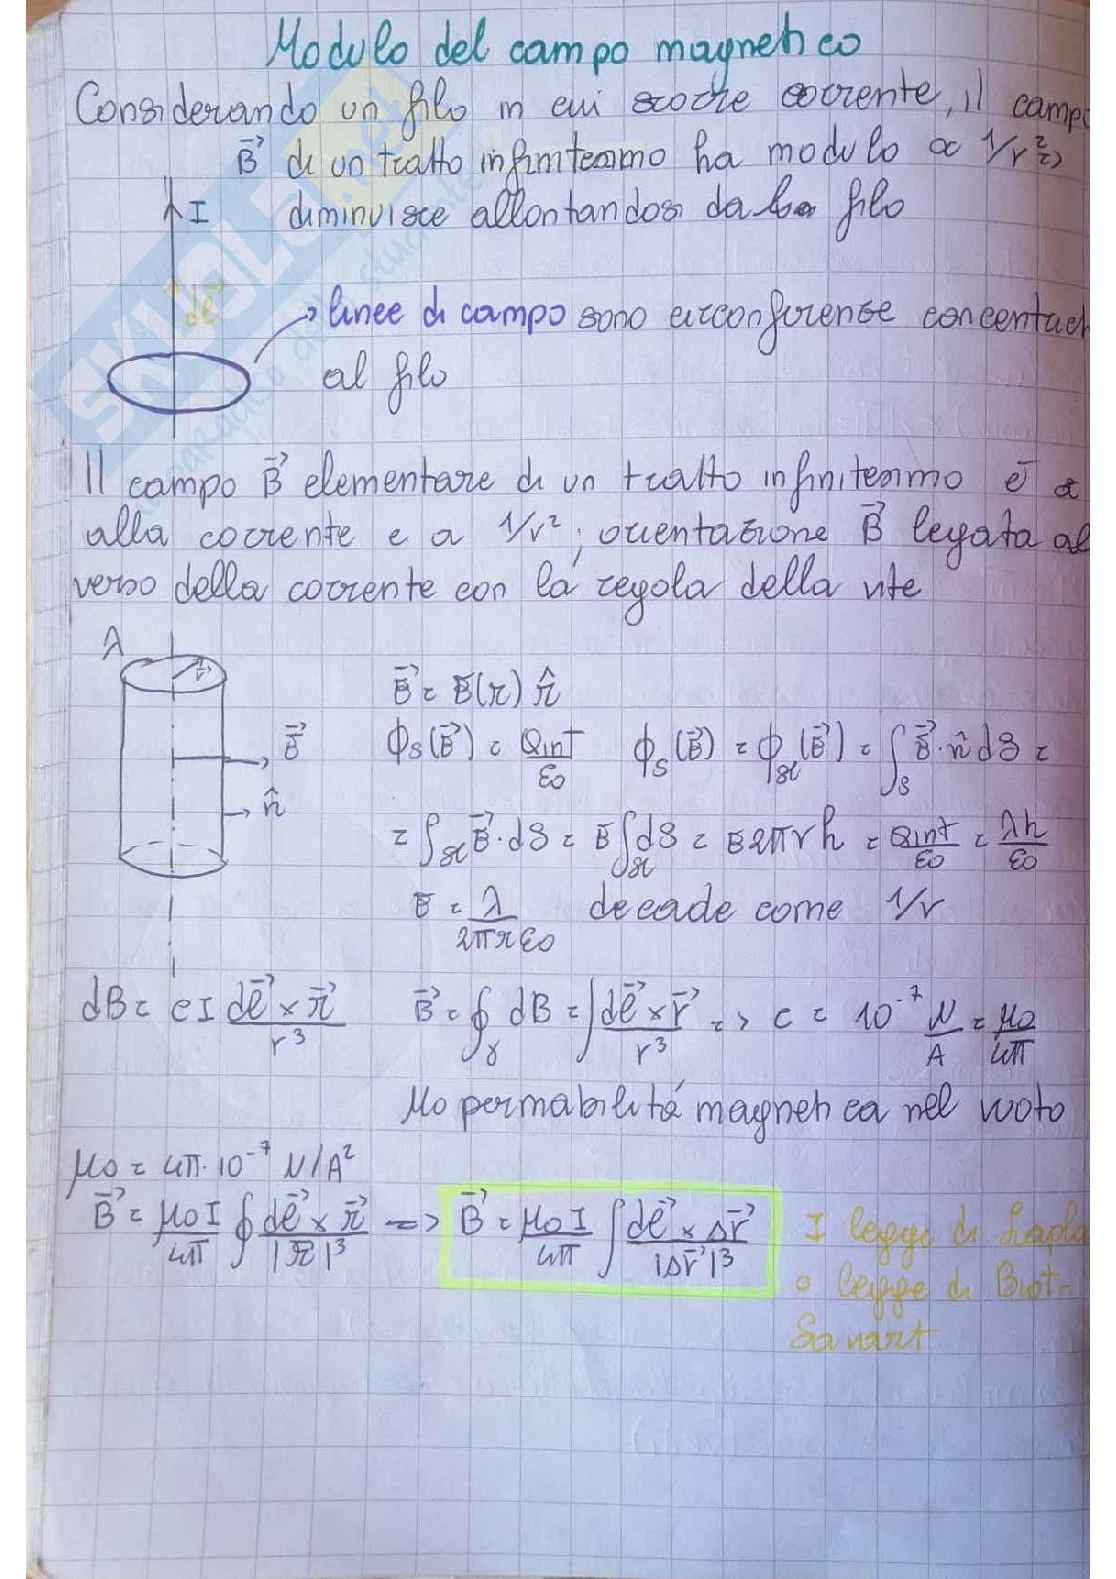 Modulo del campo magnetico
Considerando un filo in cui scorre corrente, il campo
B⃗ di un tratto infinitesimo ha modulo ∝ 1/r² =>
I diminuisce allontandosi da filo
dℓ⃗ → linee di campo sono circonferenze concentric
al filo
Il campo B⃗ elementare di un tratto infinitesimo è ∝
alla corrente e a 1/r²; orientazione B⃗ legata al
verso della corrente con la regola della vite
λ r
E⃗ = E(r) r̂
E⃗ ϕs(E⃗) = Qint/ε0 ϕs(E⃗) = ϕsl(E⃗) = ∫s E⃗ · n̂ dS =
n̂
= ∫sl E⃗ · dS = E ∫sl dS = E2πrh = Qint/ε0 = λh/ε0
E = λ/2πrε0 decade come 1/r
dB = cI dℓ⃗ × r⃗/r³ B⃗ = ∮γ dB = ∫ dℓ⃗ × r⃗/r³ => c = 10⁻⁷ N/A = μ0/4π
μ0 permabilità magnetica nel vuoto
μ0 = 4π · 10⁻⁷ N/A²
B⃗ = μ0I/4π ∮ dℓ⃗ × r⃗/|r⃗|³ => B⃗ = μ0I/4π ∫ dℓ⃗ × Δr⃗/|Δr⃗|³ I legge di Lapla
o legge di Biot-
Savart
SKUOLA.net